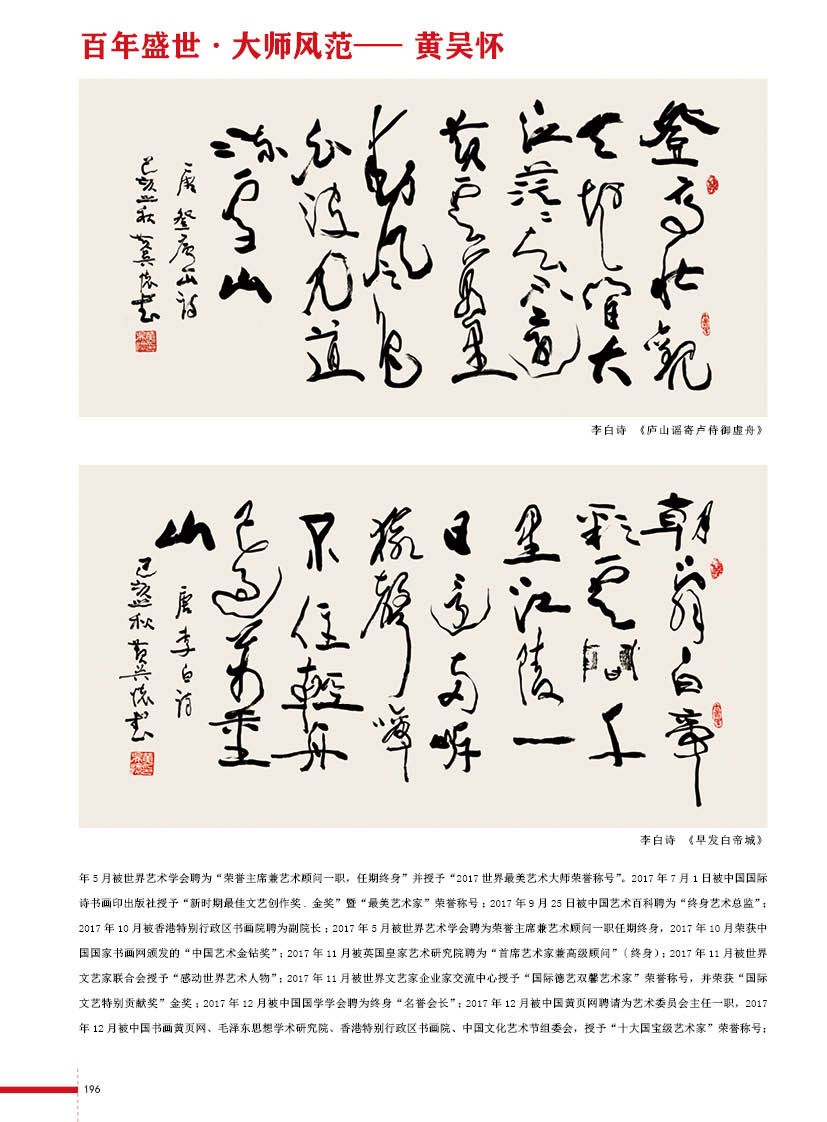 百年盛世·大师风范—— 黄吴怀
登高壮觀
天地間大
江茫茫去不還
黄雲萬里
動風色
白波九道
流雪山
己亥之秋 黄吴懷书
李白诗 《庐山谣寄卢侍御虚舟》
朝辭白帝
彩雲間千
里江陵一
日還兩岸
猿聲啼
不住輕舟
已過萬重
山
唐李白诗
己亥之秋 黄吴懷书
李白诗 《早发白帝城》
年 5 月被世界艺术学会聘为“荣誉主席兼艺术顾问一职，任期终身”并授予“2017 世界最美艺术大师荣誉称号”。2017 年 7 月 1 日被中国国际
诗书画印出版社授予“新时期最佳文艺创作奖 . 金奖”暨“最美艺术家”荣誉称号；2017 年 9 月 25 日被中国艺术百科聘为“终身艺术总监”；
2017 年 10 月被香港特别行政区书画院聘为副院长；2017 年 5 月被世界艺术学会聘为荣誉主席兼艺术顾问一职任期终身，2017 年 10 月荣获中
国国家书画网颁发的“中国艺术金钻奖”；2017 年 11 月被英国皇家艺术研究院聘为“首席艺术家兼高级顾问”（终身）；2017 年 11 月被世界
文艺家联合会授予“感动世界艺术人物”；2017 年 11 月被世界文艺家企业家交流中心授予“国际德艺双馨艺术家”荣誉称号，并荣获“国际
文艺特别贡献奖”金奖；2017 年 12 月被中国国学学会聘为终身“名誉会长”；2017 年 12 月被中国黄页网聘请为艺术委员会主任一职，2017
年 12 月被中国书画黄页网、毛泽东思想学术研究院、香港特别行政区书画院、中国文化艺术节组委会，授予“十大国宝级艺术家”荣誉称号；
196